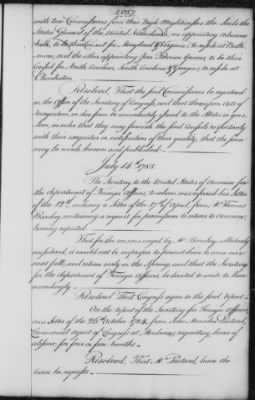 1057
with two Commissions from their High Mightinesses the Lords the
States General of the United Netherlands, one appointing Adrianus
to be their Consul for Maryland & Virginia, to reside at Balti-
more, and the other appointing Jan Boonen Graves, to be their
Consul for North Carolina, South Carolina & Georgia, to reside at
Charleston
Resolved, That the said Commissions be registered
in the Office of the Secretary of Congress, and that thereupon Acts of
Recognition in due form be immediately issued to the States in ques-
tion, in order that they may furnish the said Consuls respectively
with their exequatur or notification of their quality, that the same
may be made known and published.
July 14th 1785
The Secretary to the United States of America for
the department of Foreign Affairs, to whom was referred his Letter
of the 19th inclosing a Letter of the 17th of April from Mr Thomas
Barclay, containing a request for permission to return to America
having reported
That for the reasons urged by Mr Barclay,
it would not be improper to permit him to come over
next fall, and return early in the Spring, and that the Secretary
for the department of Foreign Affairs, be directed to write to him
accordingly.
Resolved That Congress agree to the said report.
On the report of the Secretary for Foreign Affairs,
on a Letter of the 26th October 1784 from John
Commercial Agent of Congress at requesting leave of
absence for four or five months.
Resolved, That Mr have the
leave he requests.